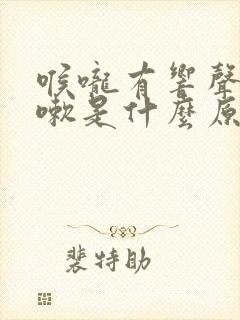 喉嚨有響聲
嗽是什麼原
裴特助